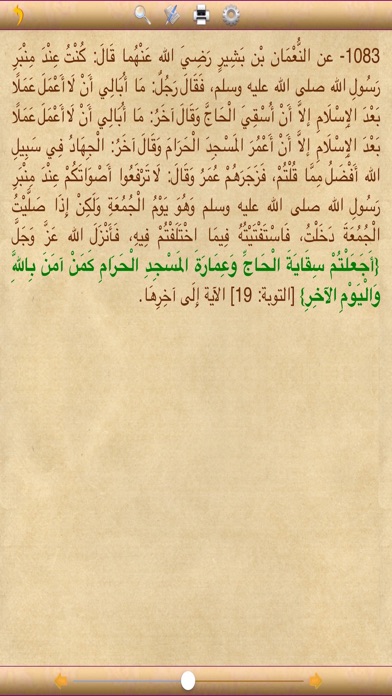 1083- عن النُّعْمَان بْن بَشِيرٍ رَضِيَ الله عَنْهُما قَالَ: كُنْتُ عِنْدَ مِنْبَرِ
رَسُولِ الله صلى الله عليه وسلم، فَقَالَ رَجُلٌ: مَا أُبَالِي أَنْ لَا أَعْمَلَ عَمَلًا
بَعْدَ الإِسْلَامِ إلَّا أَنْ أُسْقِيَ الْحَاجَّ وَقَالَ آخَرُ: مَا أُبَالِي أَنْ لَا أَعْمَلَ عَمَلًا
بَعْدَ الإِسْلَام إلَّا أَنْ أَعْمُرَ المَسْجِدَ الْحَرَامَ وَقَالَ آخَرُ: الْجِهَادُ فِي سَبِيلِ
الله أَفْضَلُ مِمَّا قُلْتُمْ، فَزَجَرَهُمْ عُمَرُ وَقَالَ: لَا تَرْفَعُوا أَصْوَاتَكُمْ عِنْدَ مِنْبَرِ
رَسُولِ الله صلى الله عليه وسلم وهُوَ يَوْمُ الْجُمُعَةِ وَلَكِنْ إِذَا صَلَّيْتُ
الْجُمُعَةَ دَخَلْتُ، فَاسْتَفْتَيْتُهُ فِيمَا اخْتَلَفْتُمْ فِيهِ، فَأَنْزَلَ الله عَزَّ وَجَلَّ
{أَجَعَلْتُمْ سِقَايَةَ الْحَاجِّ وَعِمَارَةَ المَسْجِدِ الْحَرَامِ كَمَنْ آمَنَ بِاللَّهِ
وَالْيَوْمِ الآخِرِ} [التوبة: 19] الآيَةَ إِلَى آخِرِهَا.